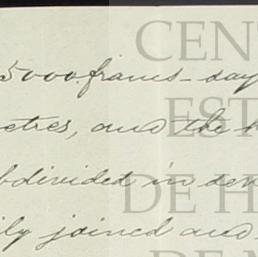 5000 francs - day
CENT
EST
etres, and the h
bdivided in de
DE H
ily joined and
DE M